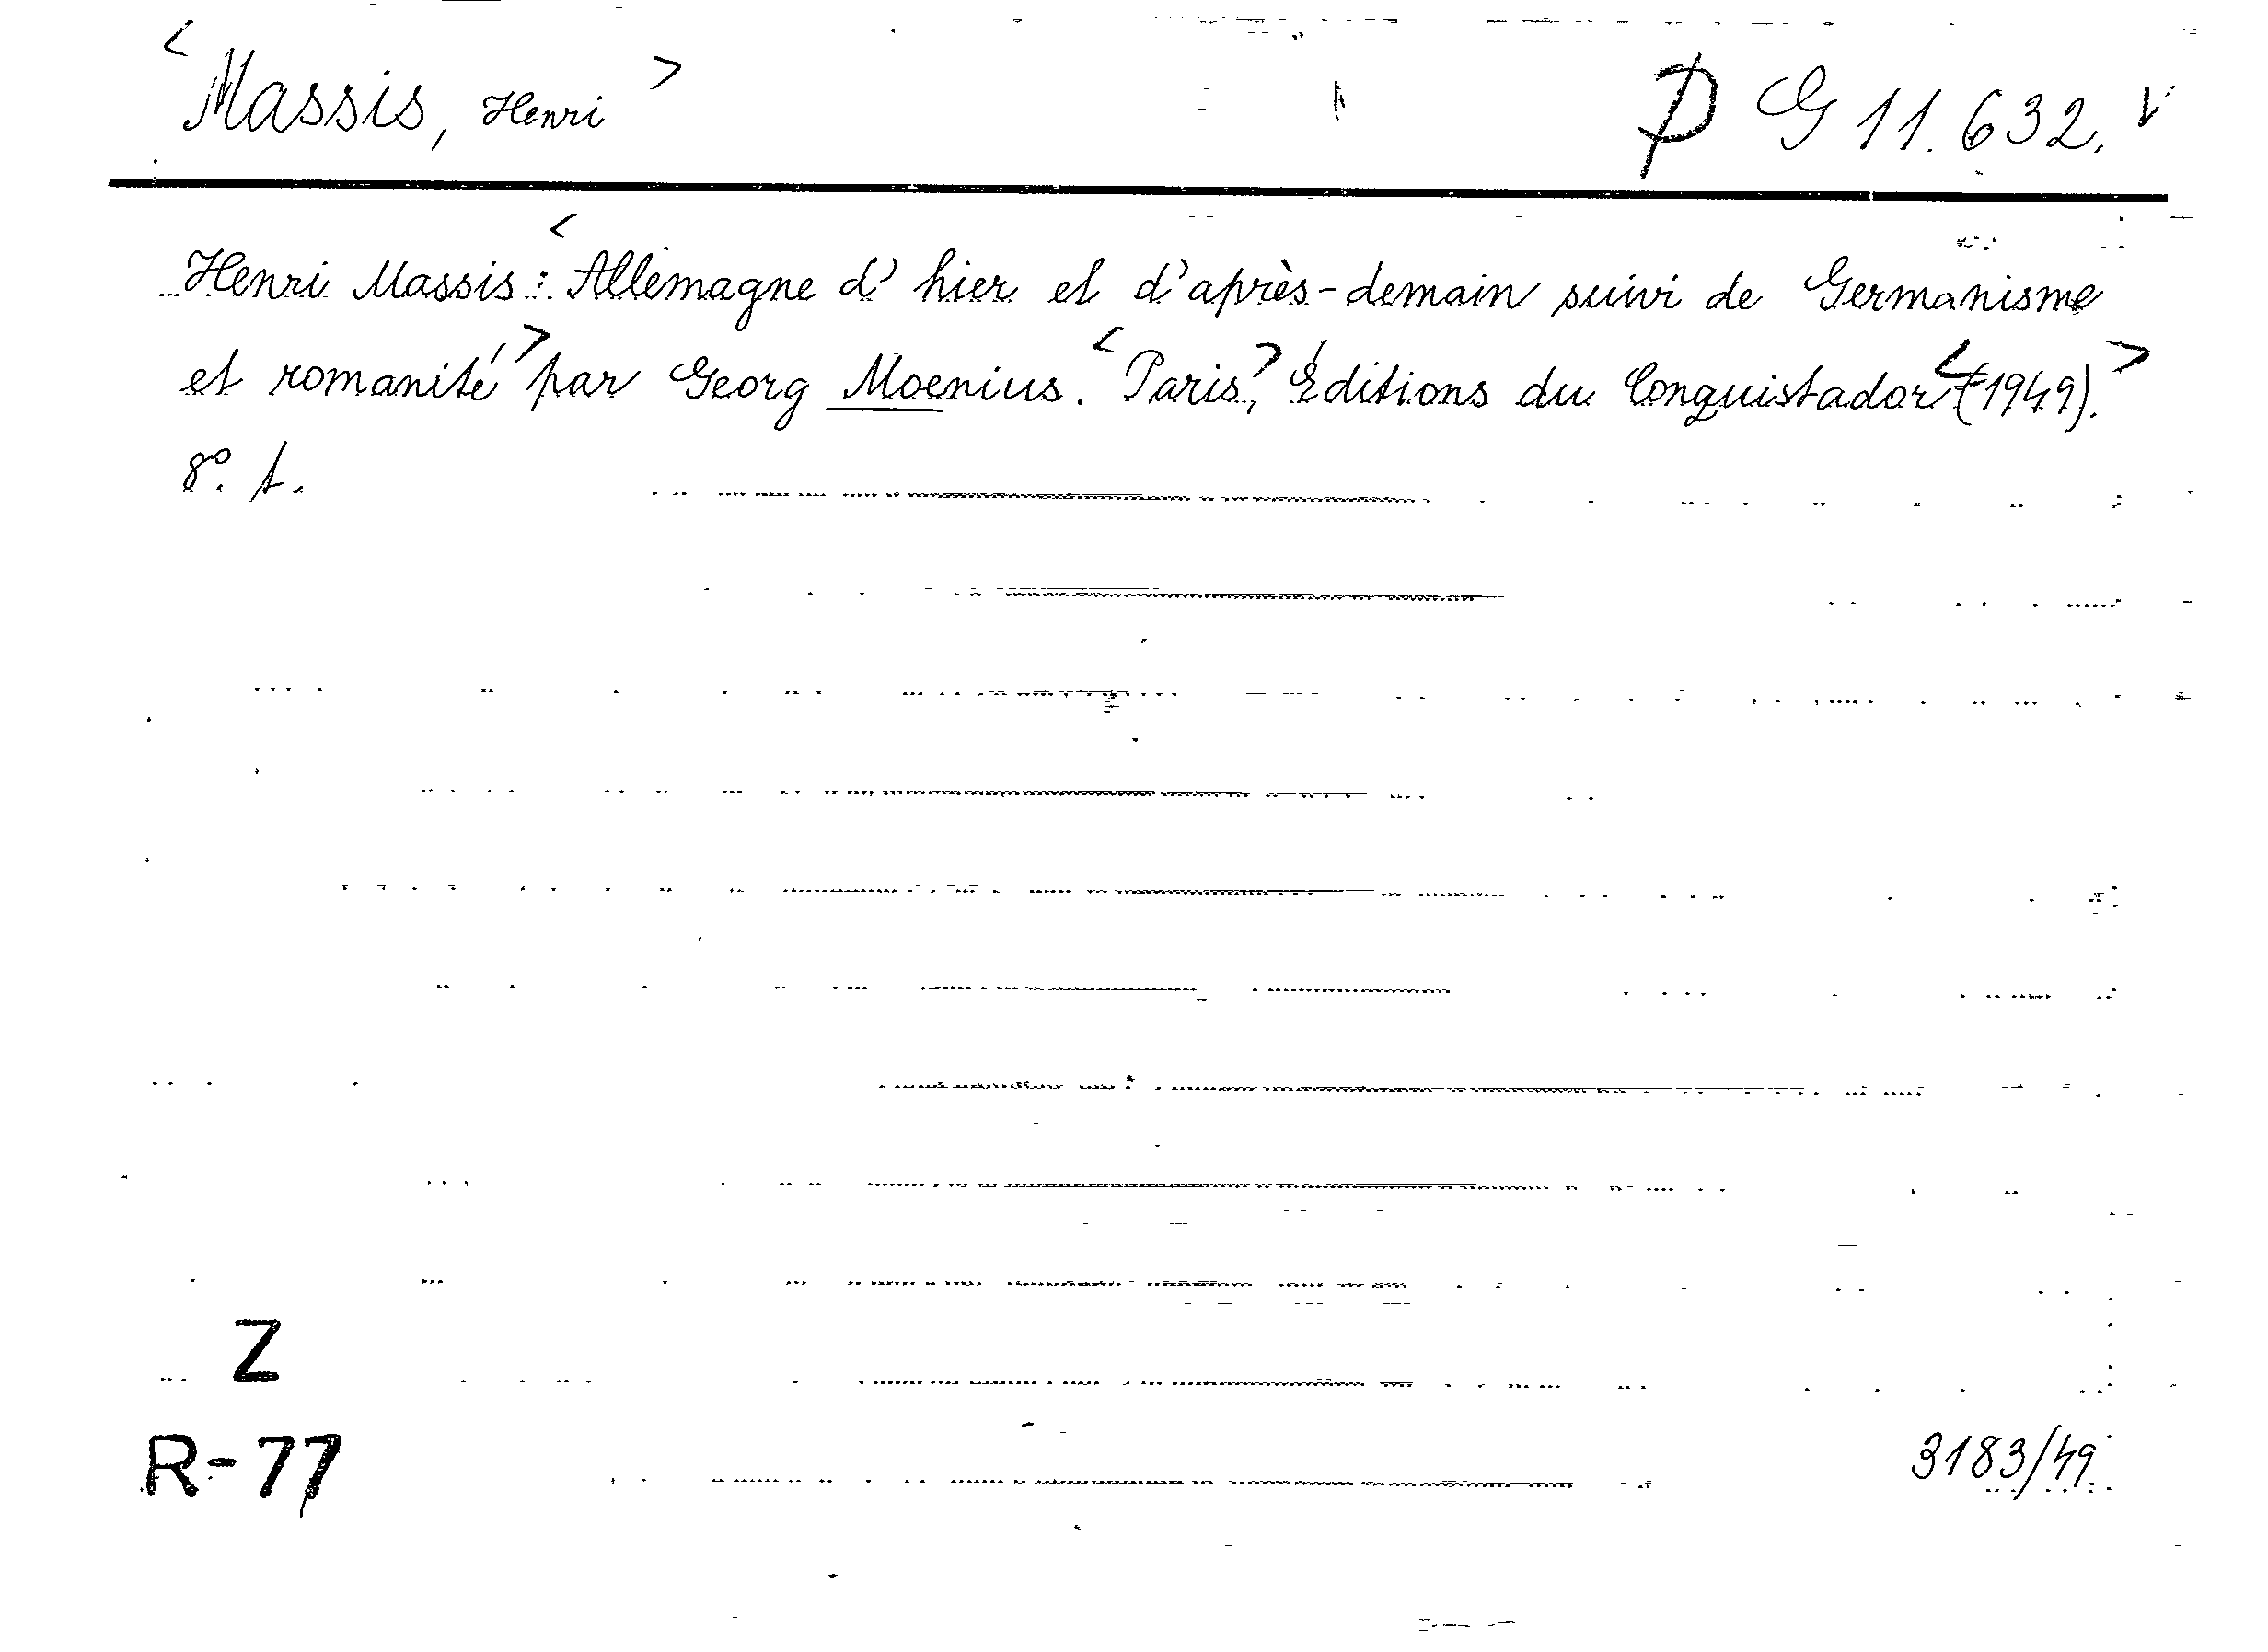 <Massis, Henri> D G 11.632. v
Henri Massis: <Allemagne d'hier et d'après-demain suivi de Germanisme
et romanité> par Georg Moenius. <Paris,> Éditions du Conquistador <(1949).>
8°.
Z
R-77 3183/49.